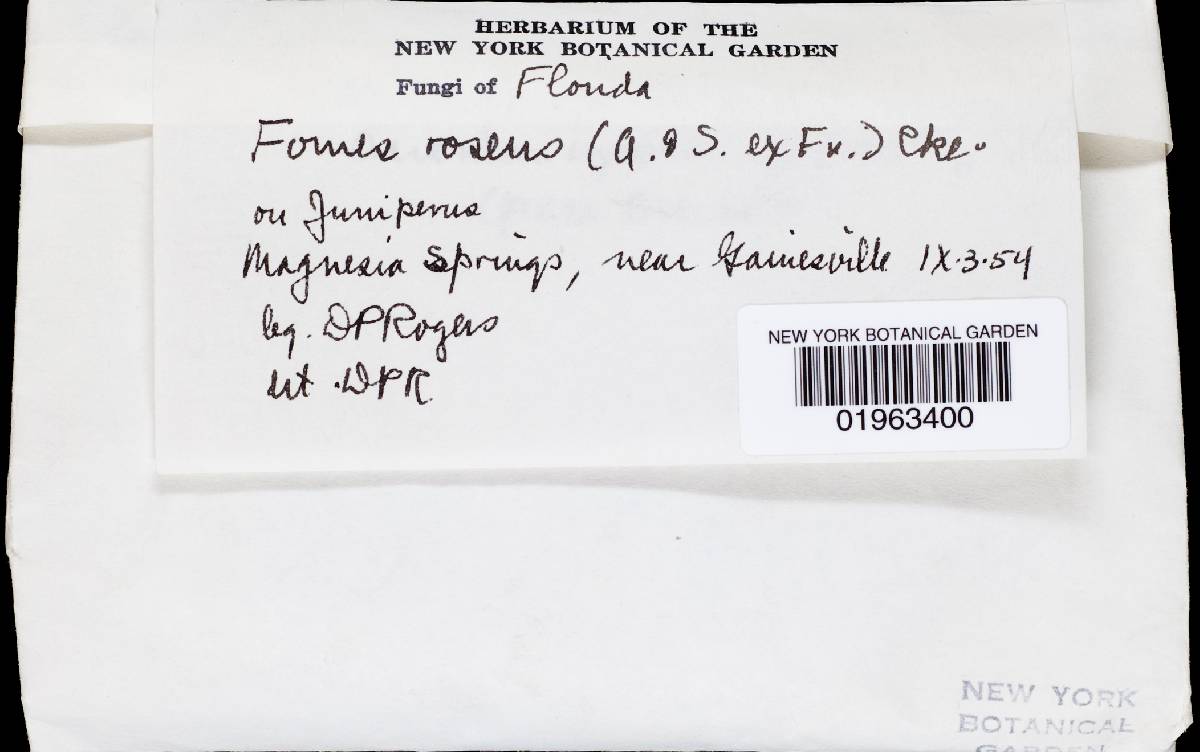 HERBARIUM OF THE
NEW YORK BOTANICAL GARDEN
Fungi of Florida
Fomes roseus (A. & S. ex Fr.) Cke.
on Juniperus
Magnesia Springs, near Gainesville IX.3.54
leg. DPRogers
det. DPR
NEW YORK BOTANICAL GARDEN
01963400
NEW YORK
BOTANICAL
GARDEN